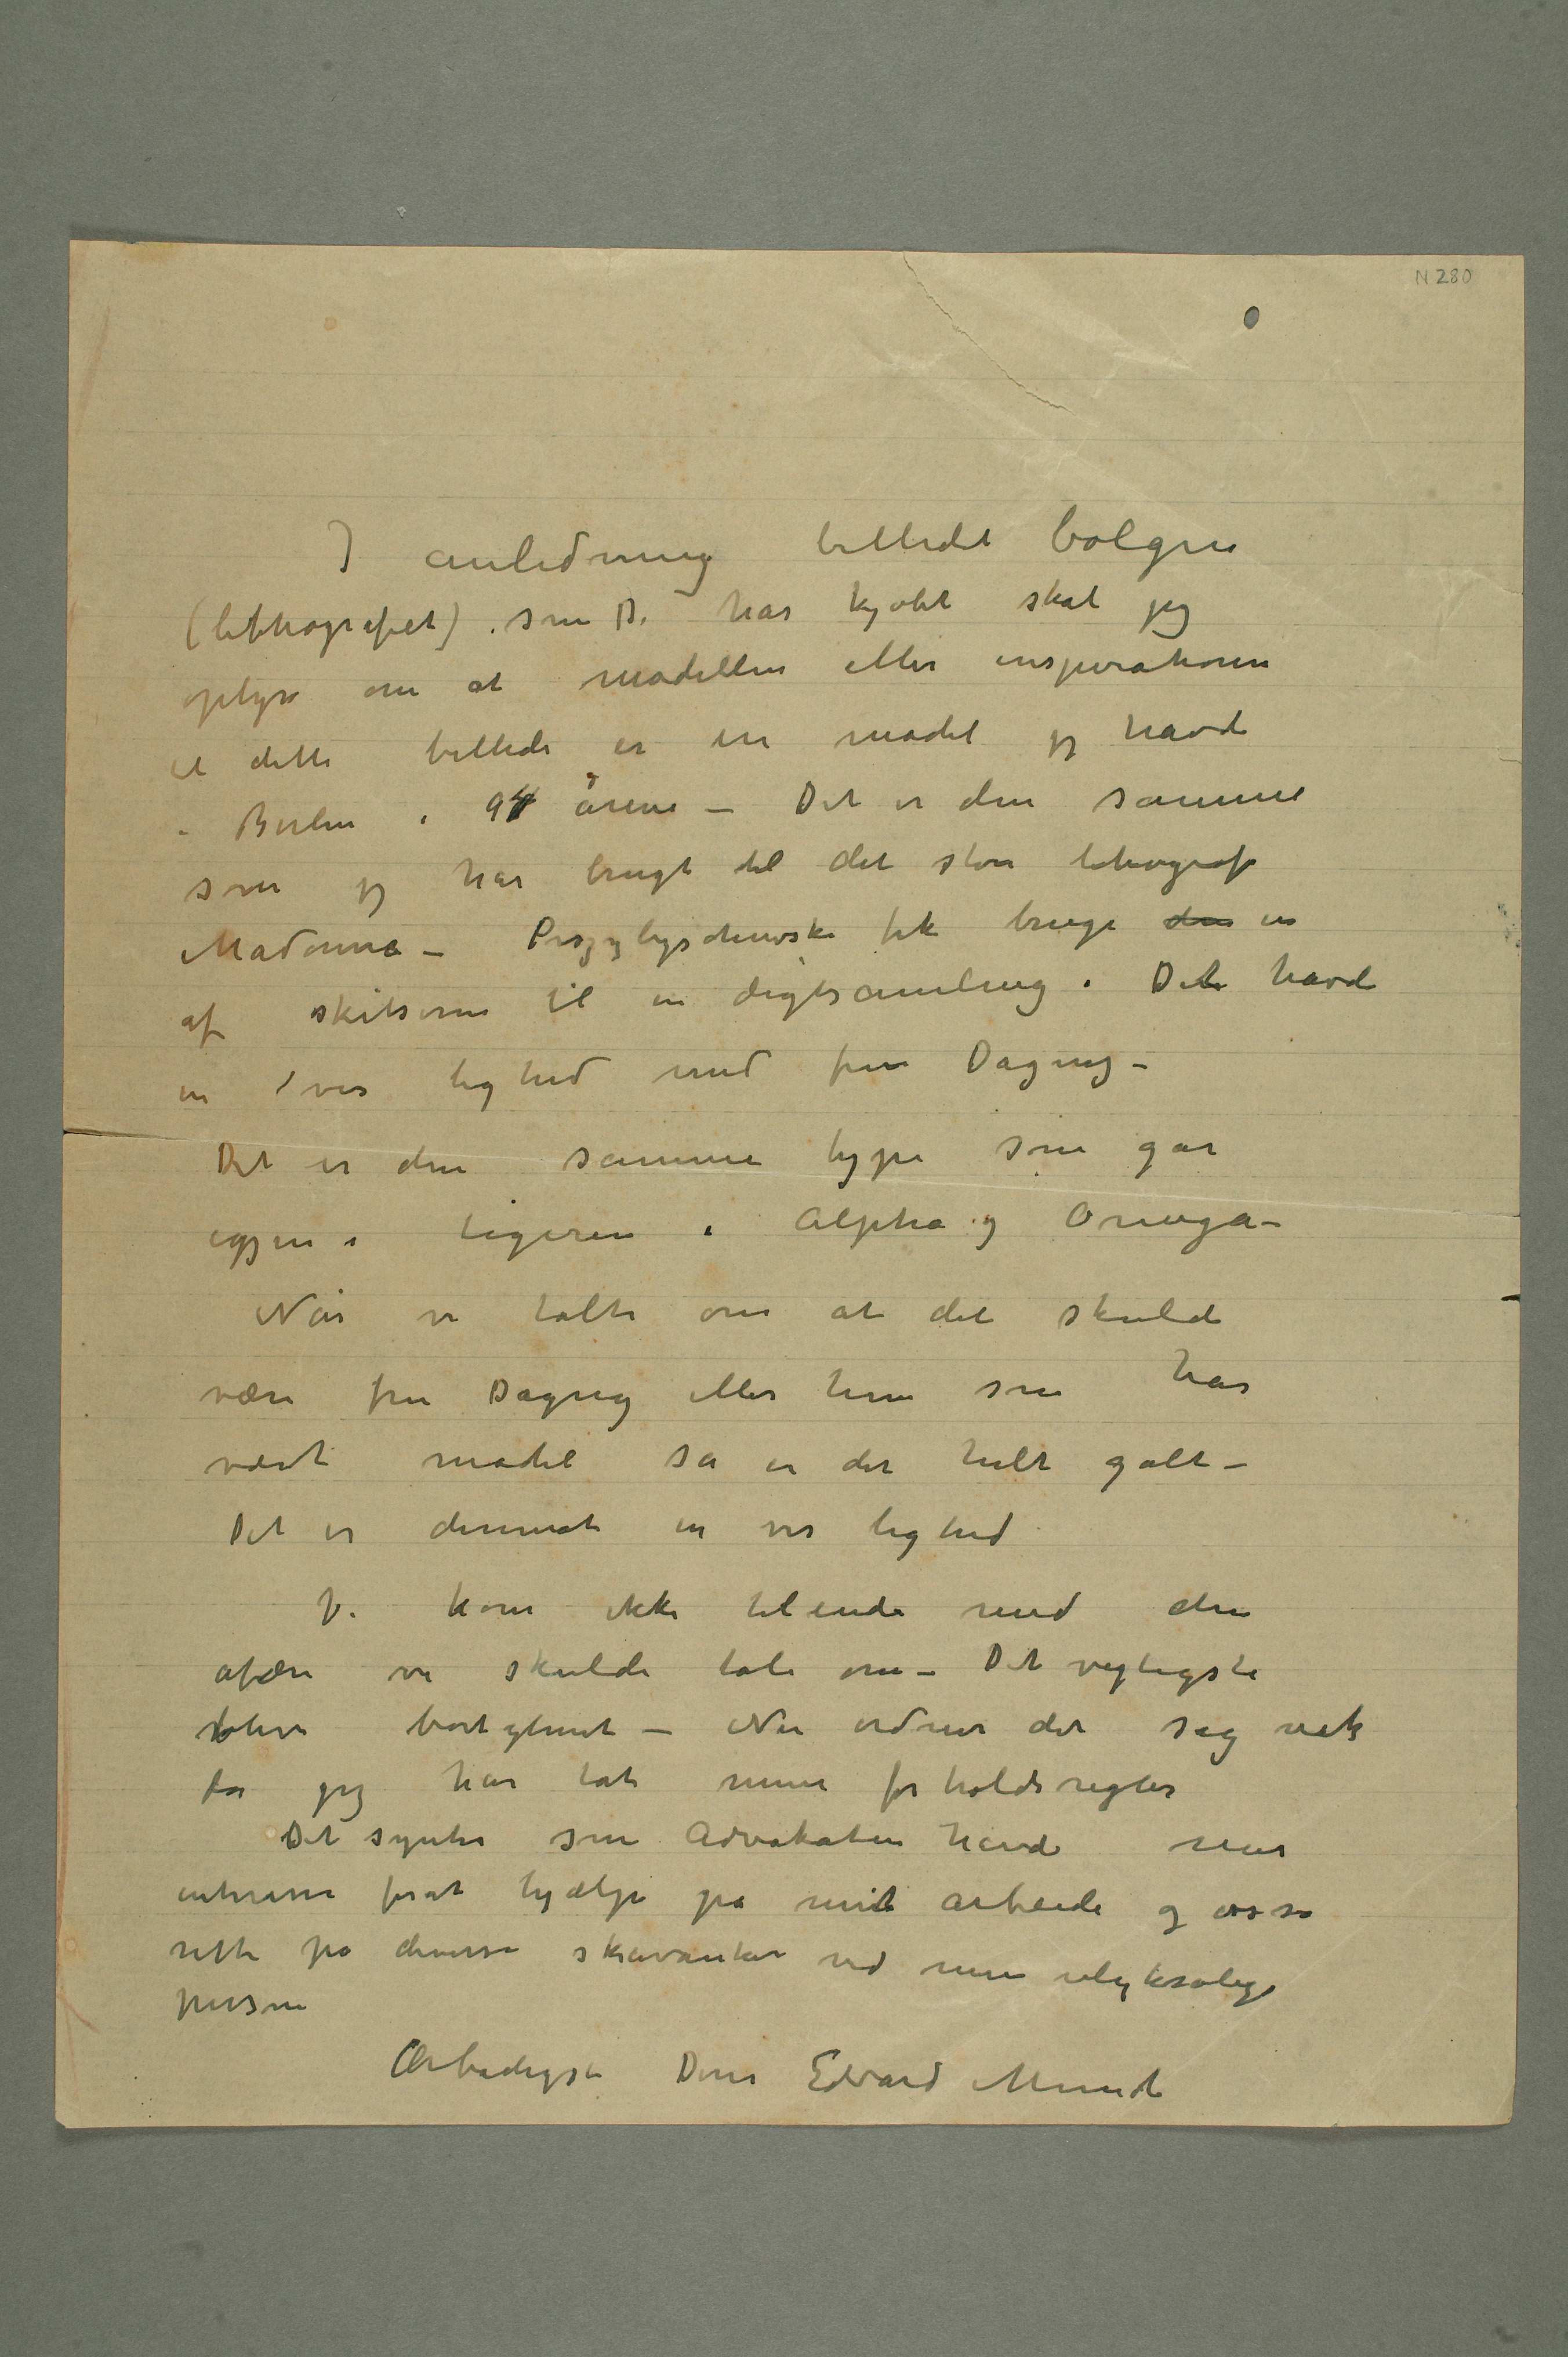 N 280
I anledning billedet bølgen
(lithografiet) som De har kjøbt skal jeg
oplyse om at modellen eller inspirationen
til dette billede er en model jeg havde
i Berlin i 94 årene – Det er den samme
som jeg har brugt til det store litografi
Madonna – Przybyschewski fik bruge den en
af skitserne til en digtsamling. Det havde
en vis lighed med fru Dagny –
Det er den samme type som går
igjen i tigeren i Alpha og Omega –
Når vi talte om at det skulde
være fru Dagny eller hun som har
været model så er det helt galt –
Det er derimot en vis lighed
Vi kom ikke tilende med den
afære vi skulde tale om – Det vigtigste
blev bortglemt – Nu ordner det sig nok
for jeg har tat mine forholdsregler
Det syntes som Advokaten havde stor
interesse forat hjælpe på mit arbeide og også
rette på diverse skavanker ved min ulyksalige
person
Ærbødigst Deres Edvard Munch